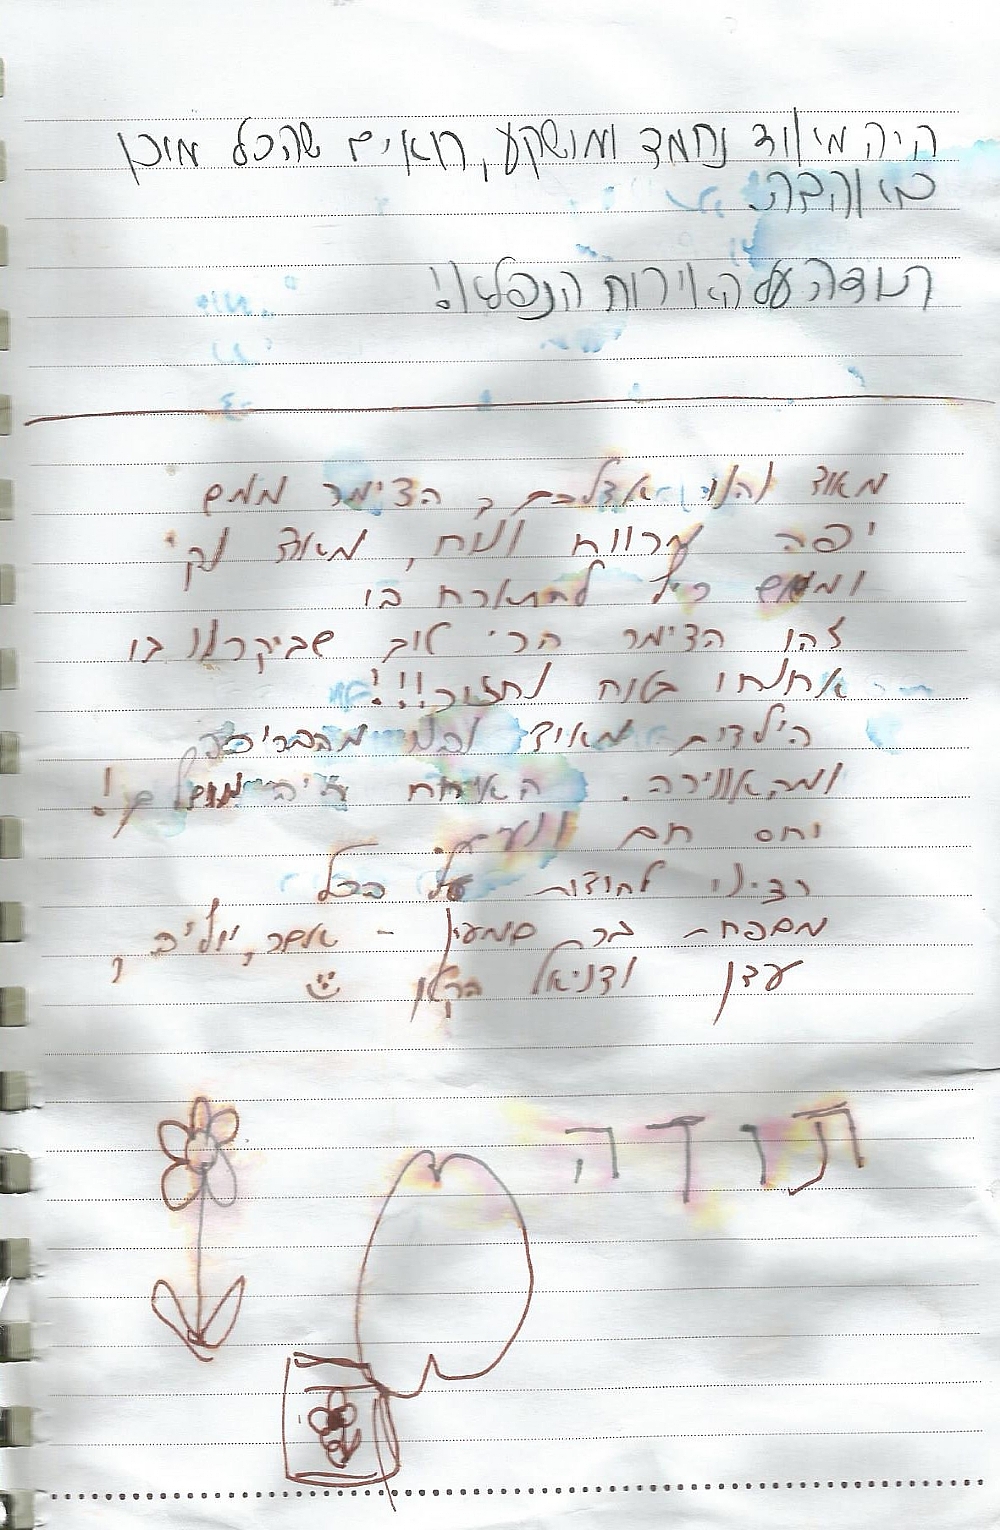 היה מאוד נחמד ומושקע, רואים שהכל מוכן
באהבה.
תודה על האירוח הנפלא!
מאוד נהנו אצלכם הצימר ממש
יפה מרווח ונוח, מאוד נקי
וממש כיף להתארח בו
זהו הצימר הכי טוב שביקרנו בו
אנחנו בטוח נחזור!!!
הילדים מאוד נהנו מהבריכה
ומהאווירה. האירוח היה מושלם!
יחס חם
רצינו להודות על הכל
משפחת בר שמעון - אשר, יוליה,
עדן ודניאל הקטן
תודה